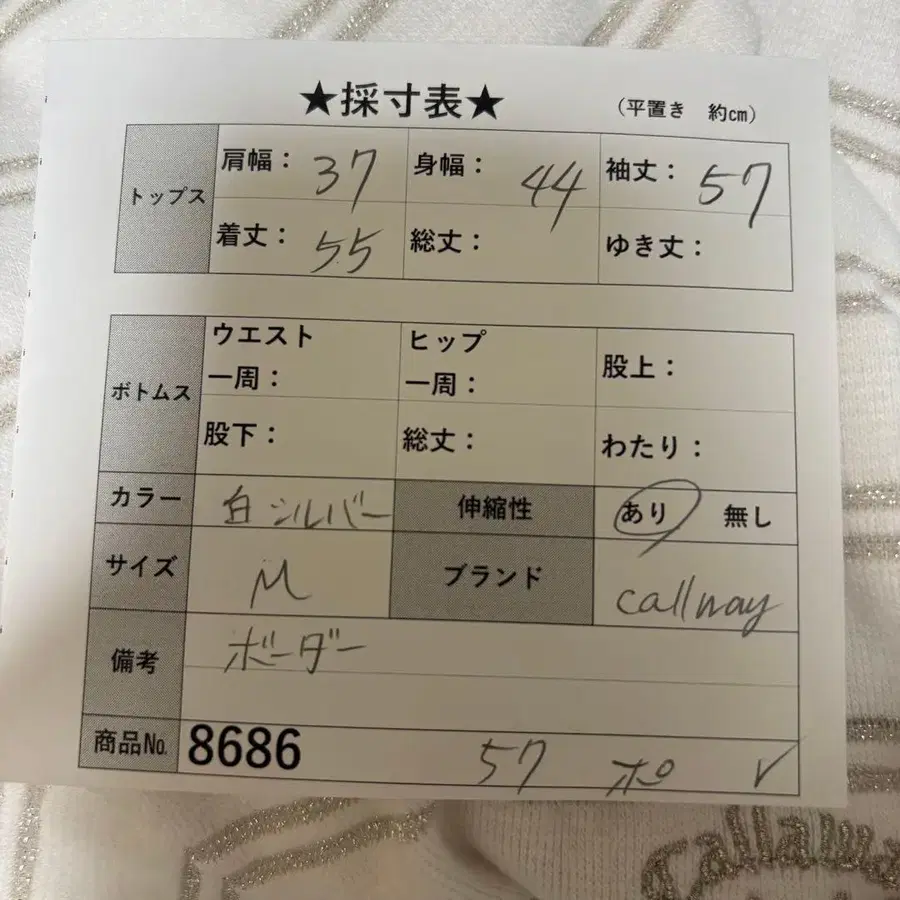 ★採寸表★ （平置き 約㎝）
トップス 肩幅： 37 身幅： 44 袖丈： 57
着丈： 55 総丈： ゆき丈：
ボトムス ウエスト一周： ヒップ一周： 股上：
股下： 総丈： わたり：
カラー 白 シルバー 伸縮性 あり 無し
サイズ M ブランド callway
備考 ボーダー
商品№ 8686 57 ポ ✓
Callaway